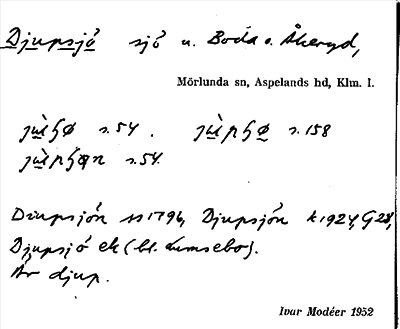 Djupsjö sjö u. Boda o. Åkeryd,
Mörlunda sn, Aspelands hd, Klm. l.
s. 54. s. 158
s. 54.
Diupsjön 1796, Djupsjön k 1924, G 28,
Djupsjö ek (bl. Lumsebo).
Är djup.
Ivar Modéer 1952